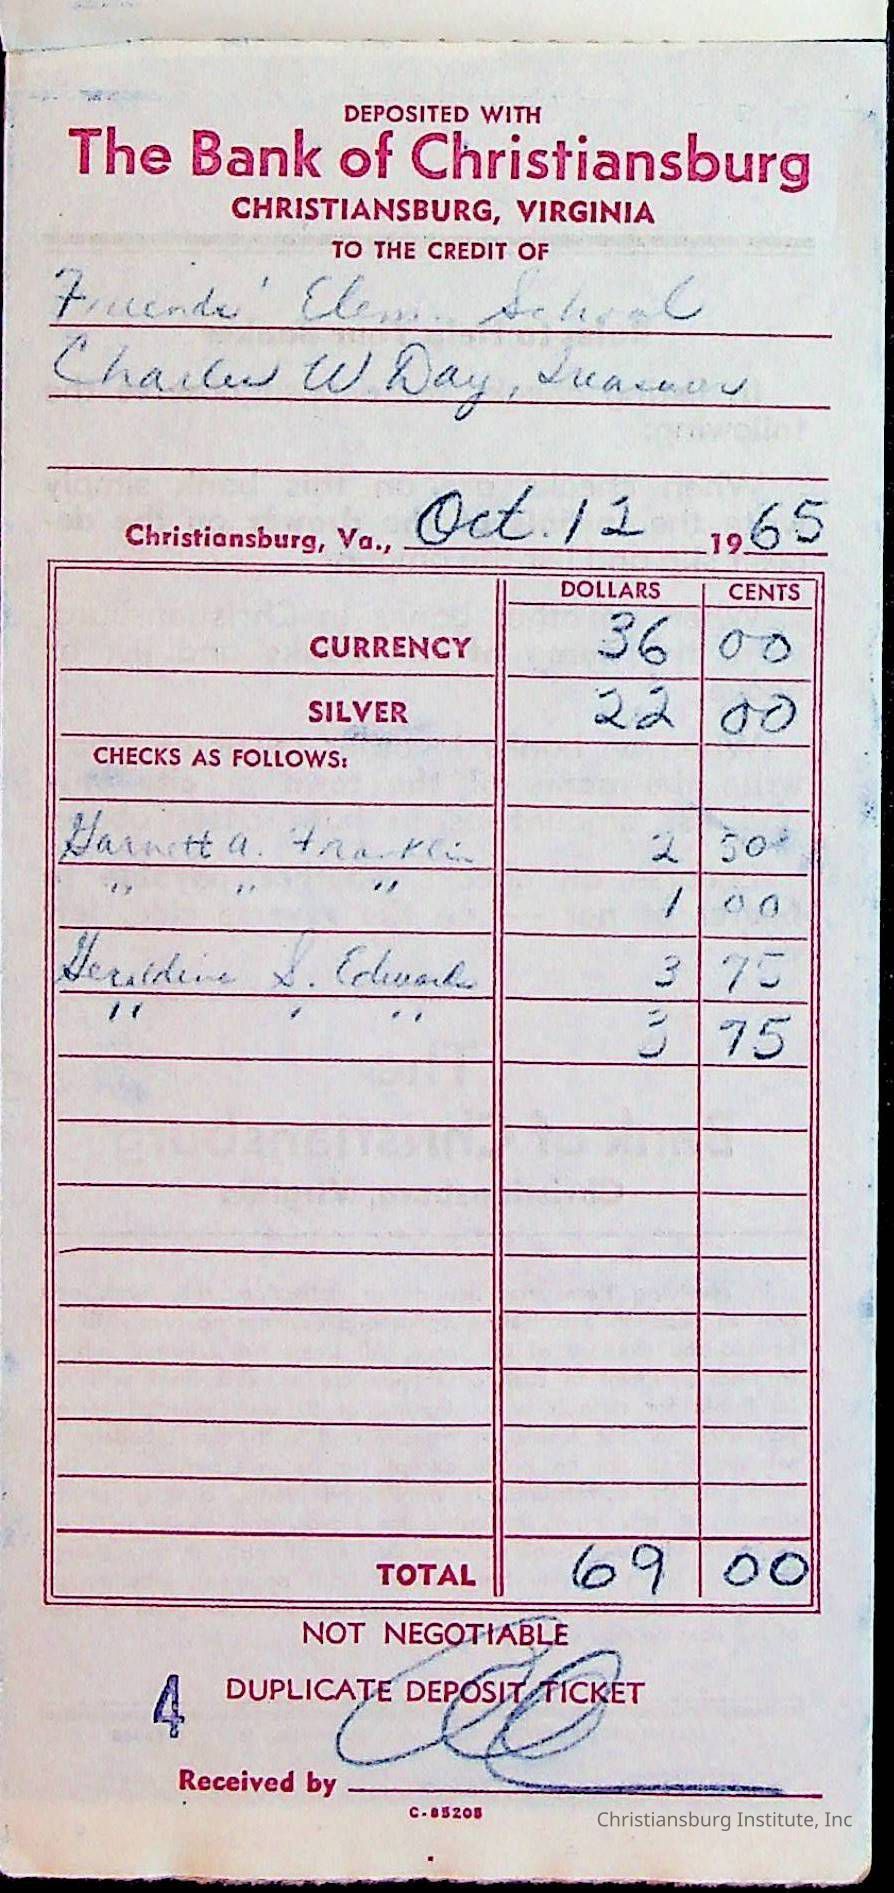 DEPOSITED WITH
The Bank of Christiansburg
CHRISTIANSBURG, VIRGINIA
TO THE CREDIT OF
Friends' Elem. School
Charles W Day, Treasurer
Christiansburg, Va., Oct. 12 1965
DOLLARS CENTS
CURRENCY 36 00
SILVER 22 00
CHECKS AS FOLLOWS:
Garnett A. Franklin 2 50
" " " 1 00
Geraldine S. Edwards 3 75
" " " 3 75
TOTAL 69 00
NOT NEGOTIABLE
4 DUPLICATE DEPOSIT TICKET
Received by
C-85208
Christiansburg Institute, Inc